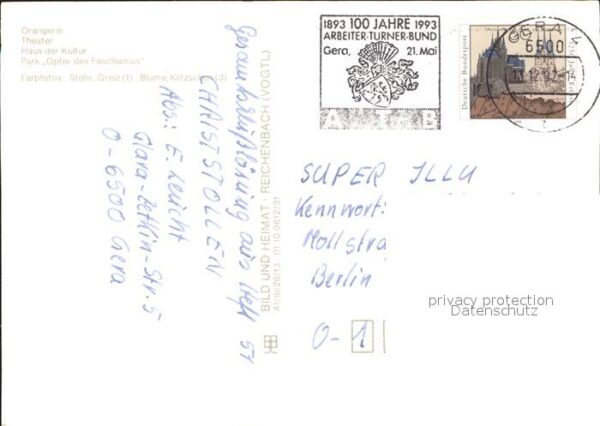 Orangerie
Theater
Haus der Kultur
Park „Opfer des Faschismus"
Farbfotos: Stöhr, Greiz (1), Blume, Klitzsch (3)
1893 100 JAHRE 1993
ARBEITER-TURNER-BUND
Gera, 21. Mai
Deutsche Bundespost
GERA 1
6500
BILD UND HEIMAT · REICHENBACH (VOGTL)
A1/III/26/13 01 10 0612/01
Gesamtauflösung aus Heft 51
CHRISTSTOLLEN
Abs.: E. Leicht
Clara-Zetkin-Str. 5
O-6500 Gera
SUPER ILLU
Kennwort:
Mollstra
Berlin
O-1
privacy protection
Datenschutz